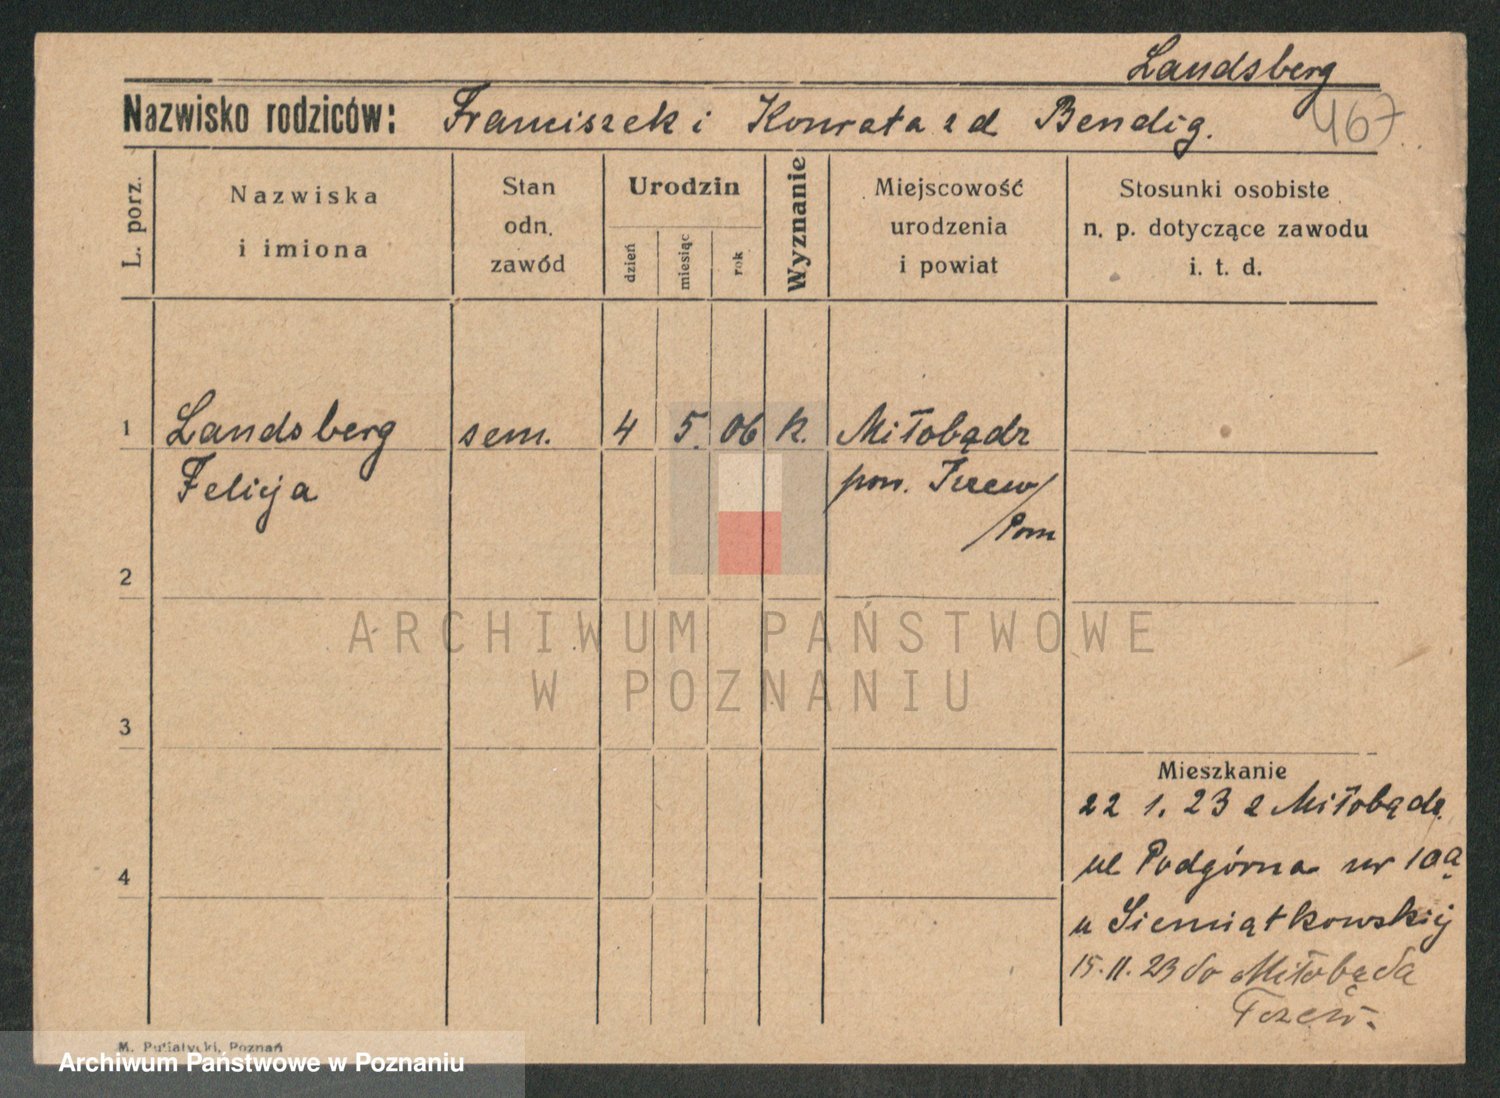 Landsberg
Nazwisko rodziców: Franciszek i Konrata z d Bendig.
467
L. porz.
Nazwiska
i imiona
Stan
odn.
zawód
Urodzin
dzień
miesiąc
rok
Wyznanie
Miejscowość
urodzenia
i powiat
Stosunki osobiste
n. p. dotyczące zawodu
i. t. d.
1 Landsberg sem. 4 5. 06 k. Miłobądz
Felicja pow. Tczew/
/Pom
2
ARCHIWUM PAŃSTWOWE
W POZNANIU
3
Mieszkanie
22 1. 23 z Miłobądz
ul Podgórna nr 10a
4
u Siemiątkowskiej
15.11.23 do Miłobąda
Tczew.
M. Putiatycki, Poznań
Archiwum Państwowe w Poznaniu